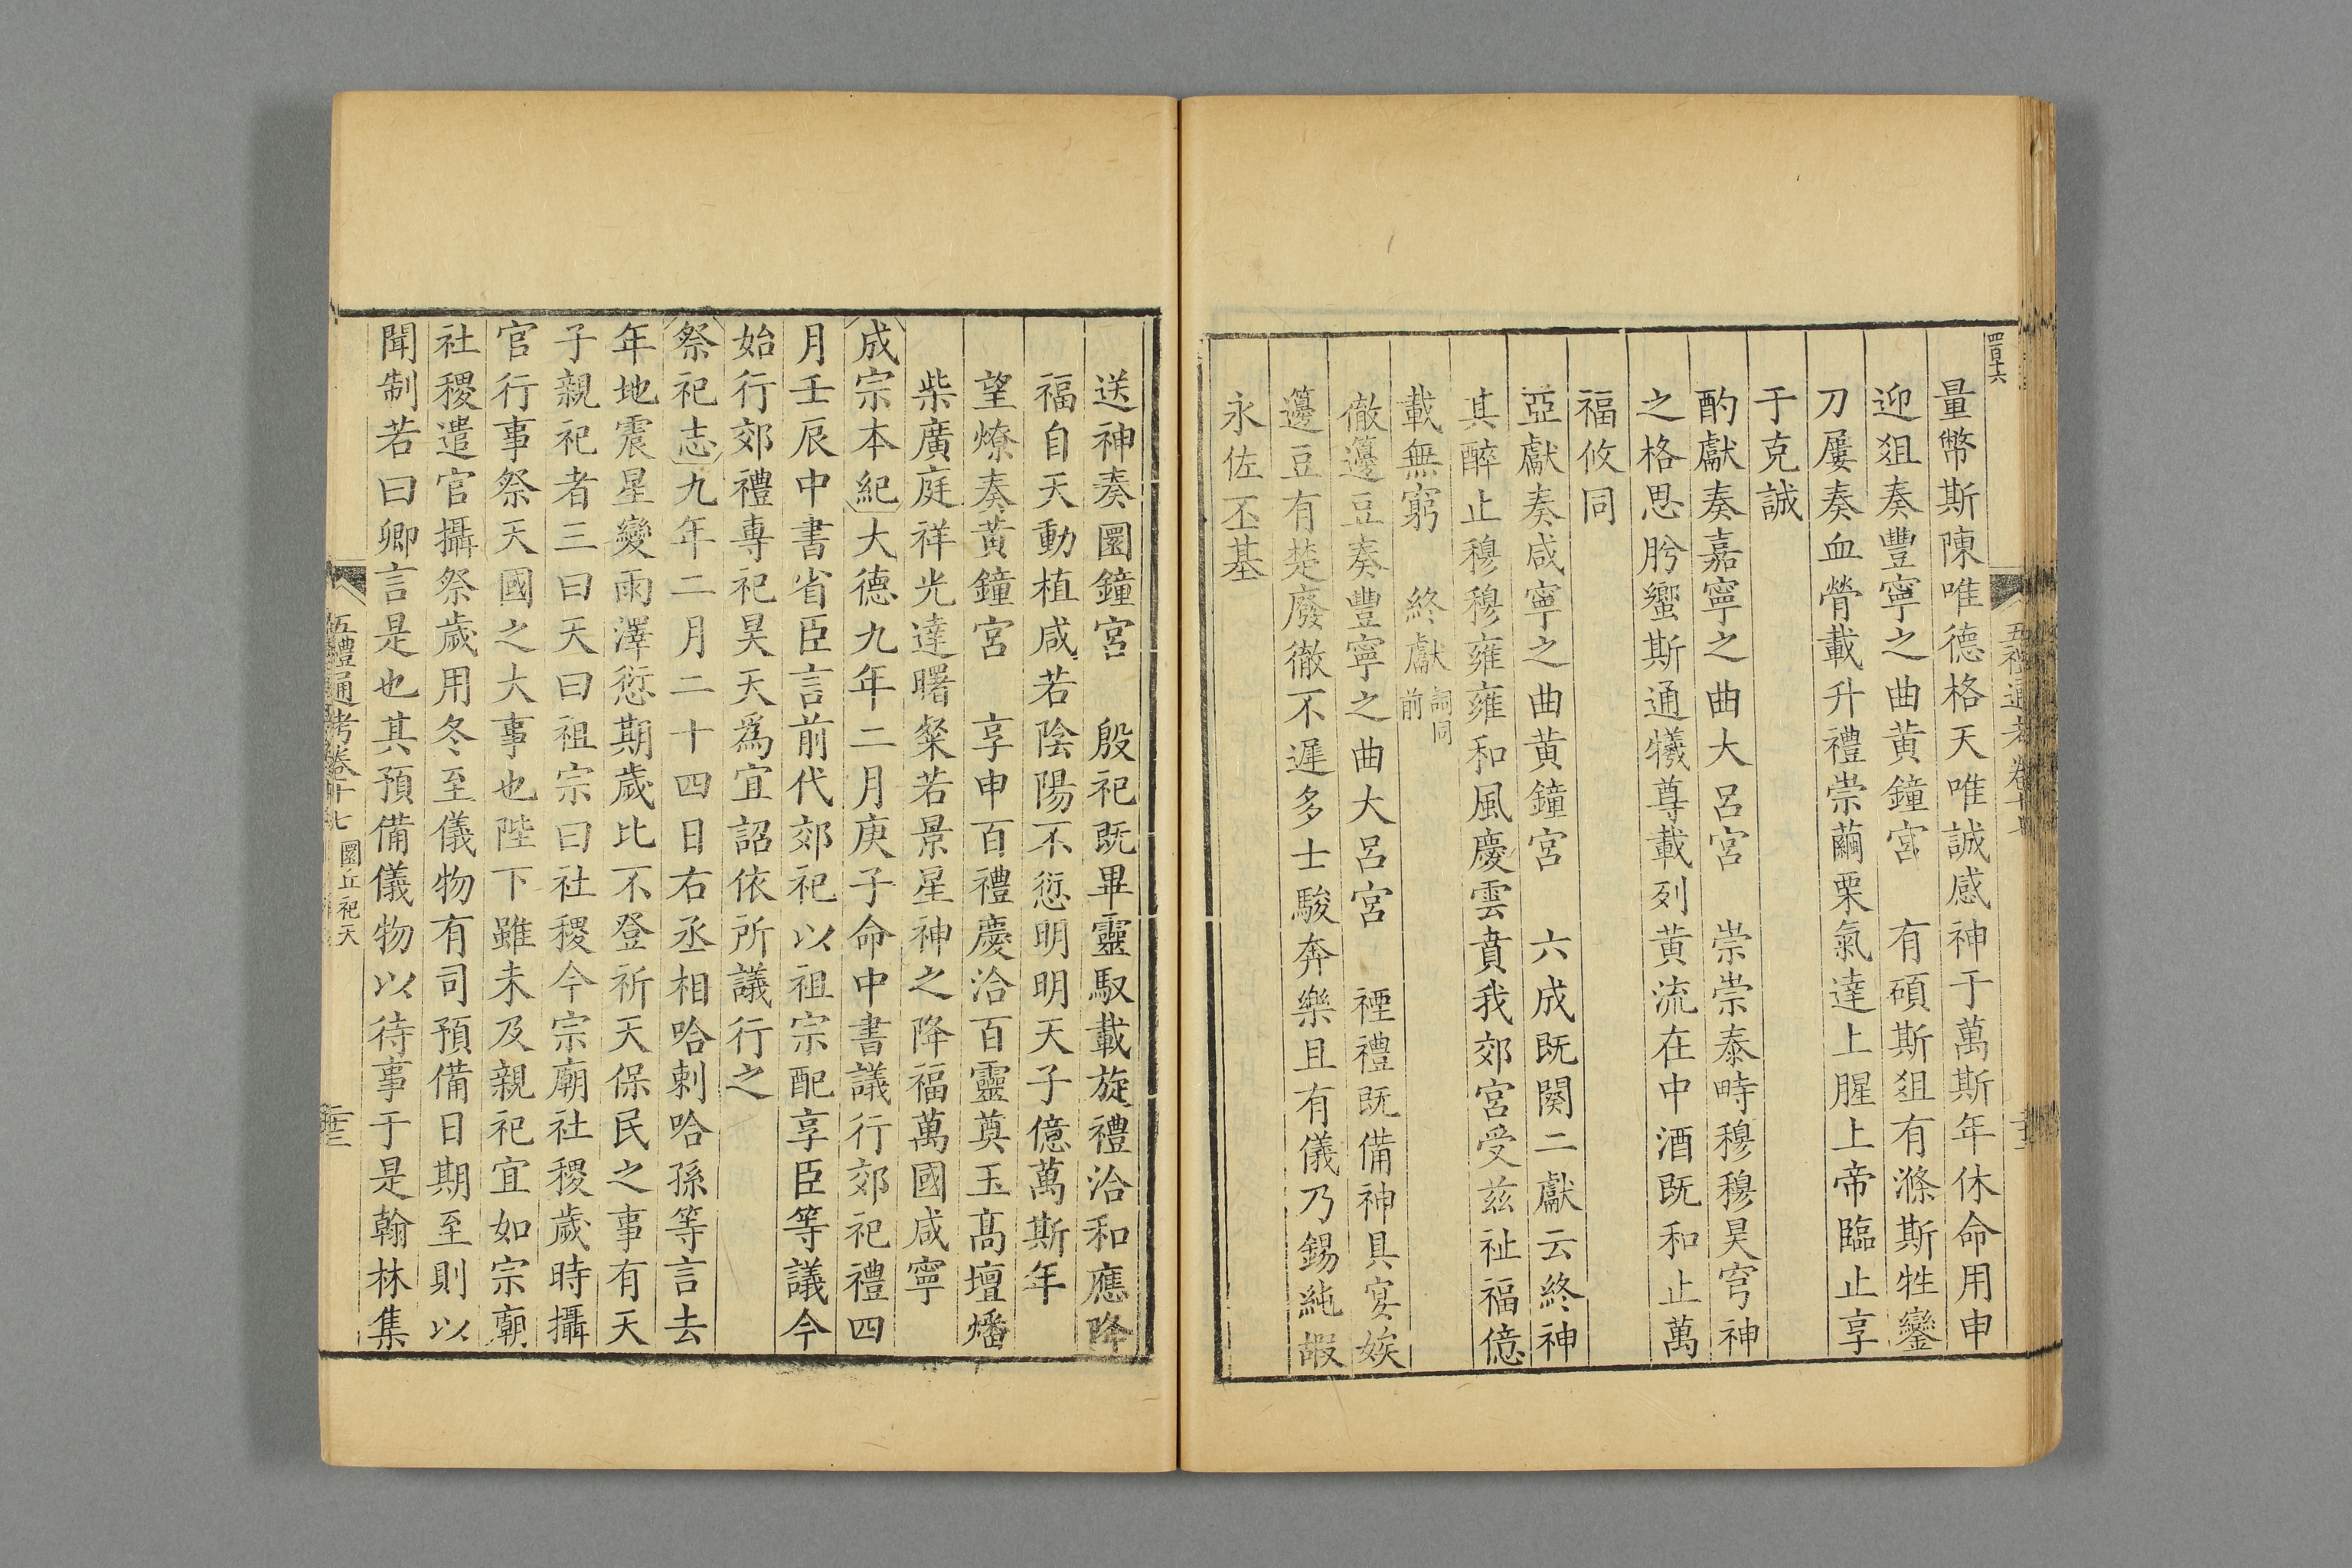 四百十六
量幣斯陳唯德格天唯誠感神于萬斯年休命用申
迎俎奏豐寧之曲黃鐘宮　有碩斯俎有滌斯牲鑾
刀屢奏血膋載升禮崇繭栗氣達上腥上帝臨止享
于克誠
酌獻奏嘉寧之曲大呂宮　崇崇泰畤穆穆昊穹神
之格思肸蠁斯通犧尊載列黃流在中酒既和止萬
福攸同
亞獻奏咸寧之曲黃鐘宮　六成既闋二獻云終神
其醉止穆穆雍雍和風慶雲賁我郊宮受茲祉福億
載無窮　終獻詞同前
徹籩豆奏豐寧之曲大呂宮　禋禮既備神具宴娭
籩豆有楚廢徹不遲多士駿奔樂且有儀乃錫純嘏
永佐丕基
送神奏圜鐘宮　殷祀既畢靈馭載旋禮洽和應降
福自天動植咸若陰陽不愆明明天子億萬斯年
望燎奏黃鐘宮　享申百禮慶洽百靈奠玉高壇燔
柴廣庭祥光達曙粲若景星神之降福萬國咸寧
成宗本紀大德九年二月庚子命中書議行郊祀禮四
月壬辰中書省臣言前代郊祀以祖宗配享臣等議今
始行郊禮專祀昊天為宜詔依所議行之
祭祀志九年二月二十四日右丞相哈剌哈孫等言去
年地震星變雨澤愆期歲比不登祈天保民之事有天
子親祀者三曰天曰祖宗曰社稷今宗廟社稷歲時攝
官行事祭天國之大事也陛下雖未及親祀宜如宗廟
社稷遣官攝祭歲用冬至儀物有司預備日期至則以
聞制若曰卿言是也其預備儀物以待事于是翰林集
五禮通考卷十七　圜丘祀天